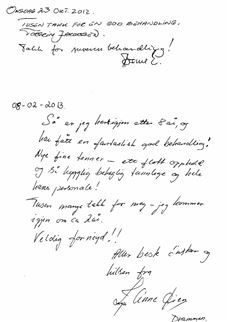 ONSDAG 23. OKT. 2012.
TUSEN TAKK FOR EN GOD BEHANDLING.
TORBJØRN JACOBSEN
Takk for suveren behandling!
08-02-2013.
Så er jeg her igjen etter 8 år, og
har fått en fantastisk god behandling!
Nye fine tenner - ett flott opphold
og så hyggelig behagelig tannlege og hele
hans personale!
Tusen mange takk for meg - jeg kommer
igjen om ca 2 år.
Veldig fornøyd!!
Aller beste ønsker og
hilsen fra
Anne
Drammen.